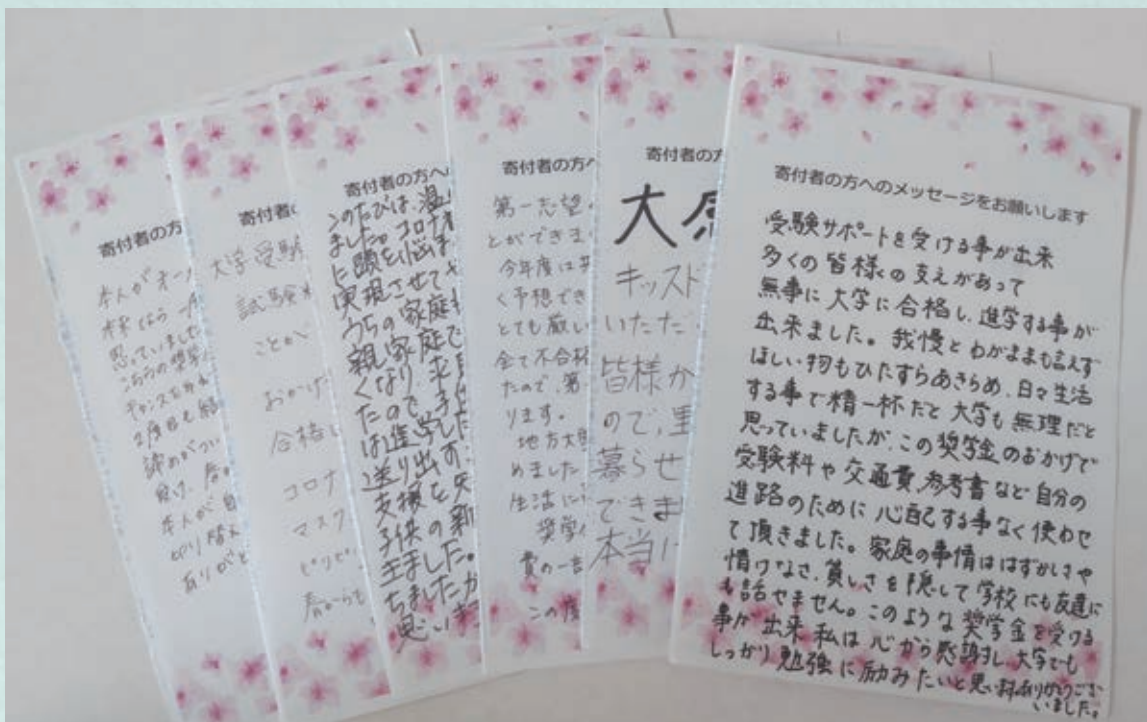 寄付者の方へ
本人がオー
思っていました
こちらの奨学
チャンスを
2度目も
諦めがつい
本人が自
切り替え
ありがと
寄付者の
大学受験
試験
ことが
おかげ
合格し
コロナ
マスク
ピリピ
春からも
寄付者の方へ
このたびは、温
ました。コロナ
に頭を悩ま
実現させて
うちの家庭も
親家庭で
くなり、来
たので、子
は進学した
送り出す
支援を
子供の新
生ました。
ちましたが
思います
寄付者の方へ
第一志望
とができま
今年度は
く予想でき
とても厳し
全て不合格
たので、第
ります。
地方大
めました
生活に
奨学
費の一部
この度
寄付者の方
大
キッズド
いただ
皆様か
ので、
暮らせ
できま
本当に
寄付者の方へのメッセージをお願いします
受験サポートを受ける事が出来
多くの皆様の支えがあって
無事に大学に合格し、進学する事が
出来ました。我慢とわがままも言えず
ほしい物もひたすらあきらめ、日々生活
する事で精一杯だと大学も無理だと
思っていましたが、この奨学金のおかげで
受験料や交通費、参考書など自分の
進路のために心配する事なく使わせ
て頂きました。家庭の事情ははずかしさや
情けなさ、貧しさを隠して学校にも友達に
も話せません。このような奨学金を受ける
事が出来私は心から感謝し、大学でも
しっかり勉強に励みたいと思います。ありがとうござ
いました。